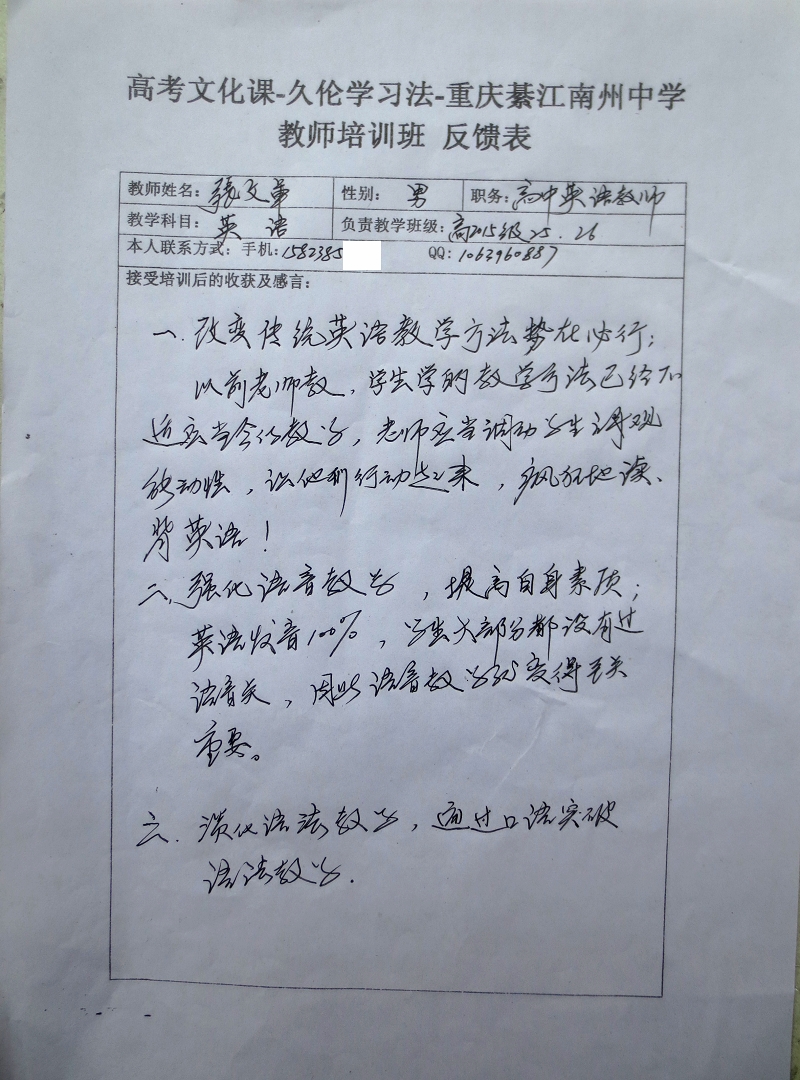 高考文化课-久伦学习法-重庆綦江南州中学
教师培训班 反馈表
教师姓名：张文革 性别：男 职务：高中英语教师
教学科目：英语 负责教学班级：高2015级25.26
本人联系方式：手机：1582385 QQ：1063960887
接受培训后的收获及感言：
一.改变传统英语教学方法势在必行；
以前老师教，学生学的教学方法已经不
适应当今的教学，老师应当调动学生主观
能动性，让他们行动起来，疯狂地读、
背英语！
二、强化语音教学，提高自身素质；
英语发音100%，学生大部分都没有过
语音关，因此语音教学就变得至关
重要。
三.淡化语法教学，通过口语突破
语法教学.